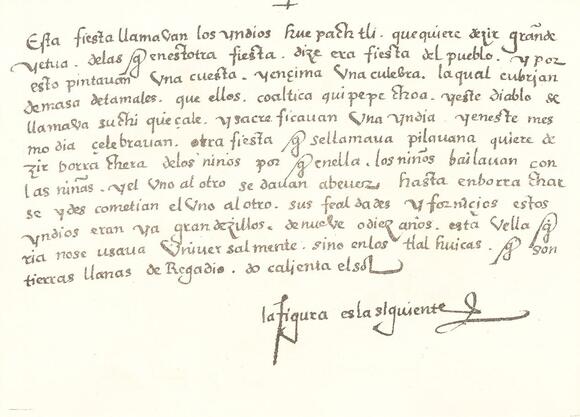 Esta fiesta llamavan los yndios hue pach tli. que quiere dezir grāde
yetua. delas q̄ enestotra fiesta. dize era fiesta del pueblo. y por
esto pintavan una cuesta. y ençima una culebra. la qual cubrian
demasa detamales. que ellos. coaltica qui pepe choa. y este diablo se
llamava suchi que çale. y sacre ficavan una yndia. y eneste mes
mo dia çelebravan. otra fiesta q̄ sellamava pilavana quiere de
zir borra chera delos niños por q̄ enella. los niños bailavan con
las niñas. y el uno al otro se davan abever. hasta enborra char
se y des cometian el uno al otro. sus feal dades y fornicios estos
yndios eran ya grandezillos. de nueve odiez años. esta vella q̄
ria nose usava universalmente. sino enlos tlal huicas. q̄ son
tierras llanas de Regadio. do calienta elsol
la figura esla siguiente